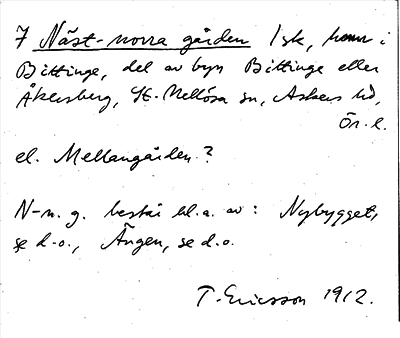 7 Näst-norra gården Isk, hmn i
Bittinge, del av byn Bittinge eller
Åkersberg, St. Mellösa sn, Askers hd,
Ör. l.
el. Mellangården?
N-n. g. består bl.a. av: Nybygget,
se d.o., Ängen, se d.o.
T. Ericsson 1912.